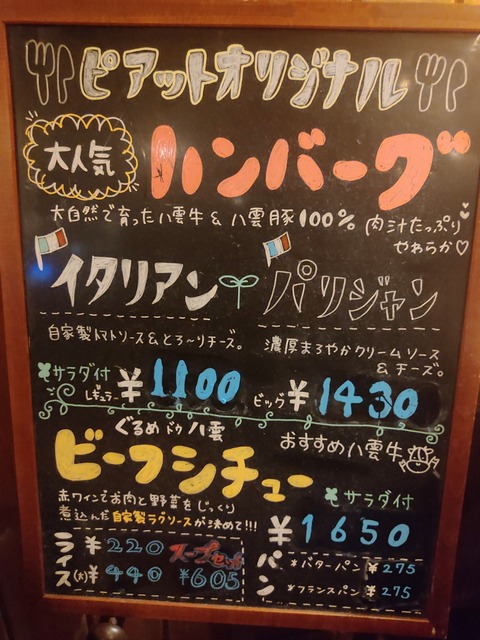 ピアットオリジナル
大人気
ハンバーグ
大自然で育った八雲牛&八雲豚100%
肉汁たっぷり
やわらか♡
イタリアン
パリジャン
自家製トマトソース&とろ〜りチーズ。
濃厚まろやかクリームソース
&チーズ。
サラダ付
レギュラー ¥1100
ビッグ ¥1430
ぐるめドゥ八雲
おすすめ八雲牛
ビーフシチュー
赤ワインでお肉と野菜をじっくり
煮込んだ自家製ラグソースが決めて!!!
サラダ付
¥1650
ライス
¥220
(大)¥440
スープセット
¥605
パン
*バターパン ¥275
*フランスパン ¥275